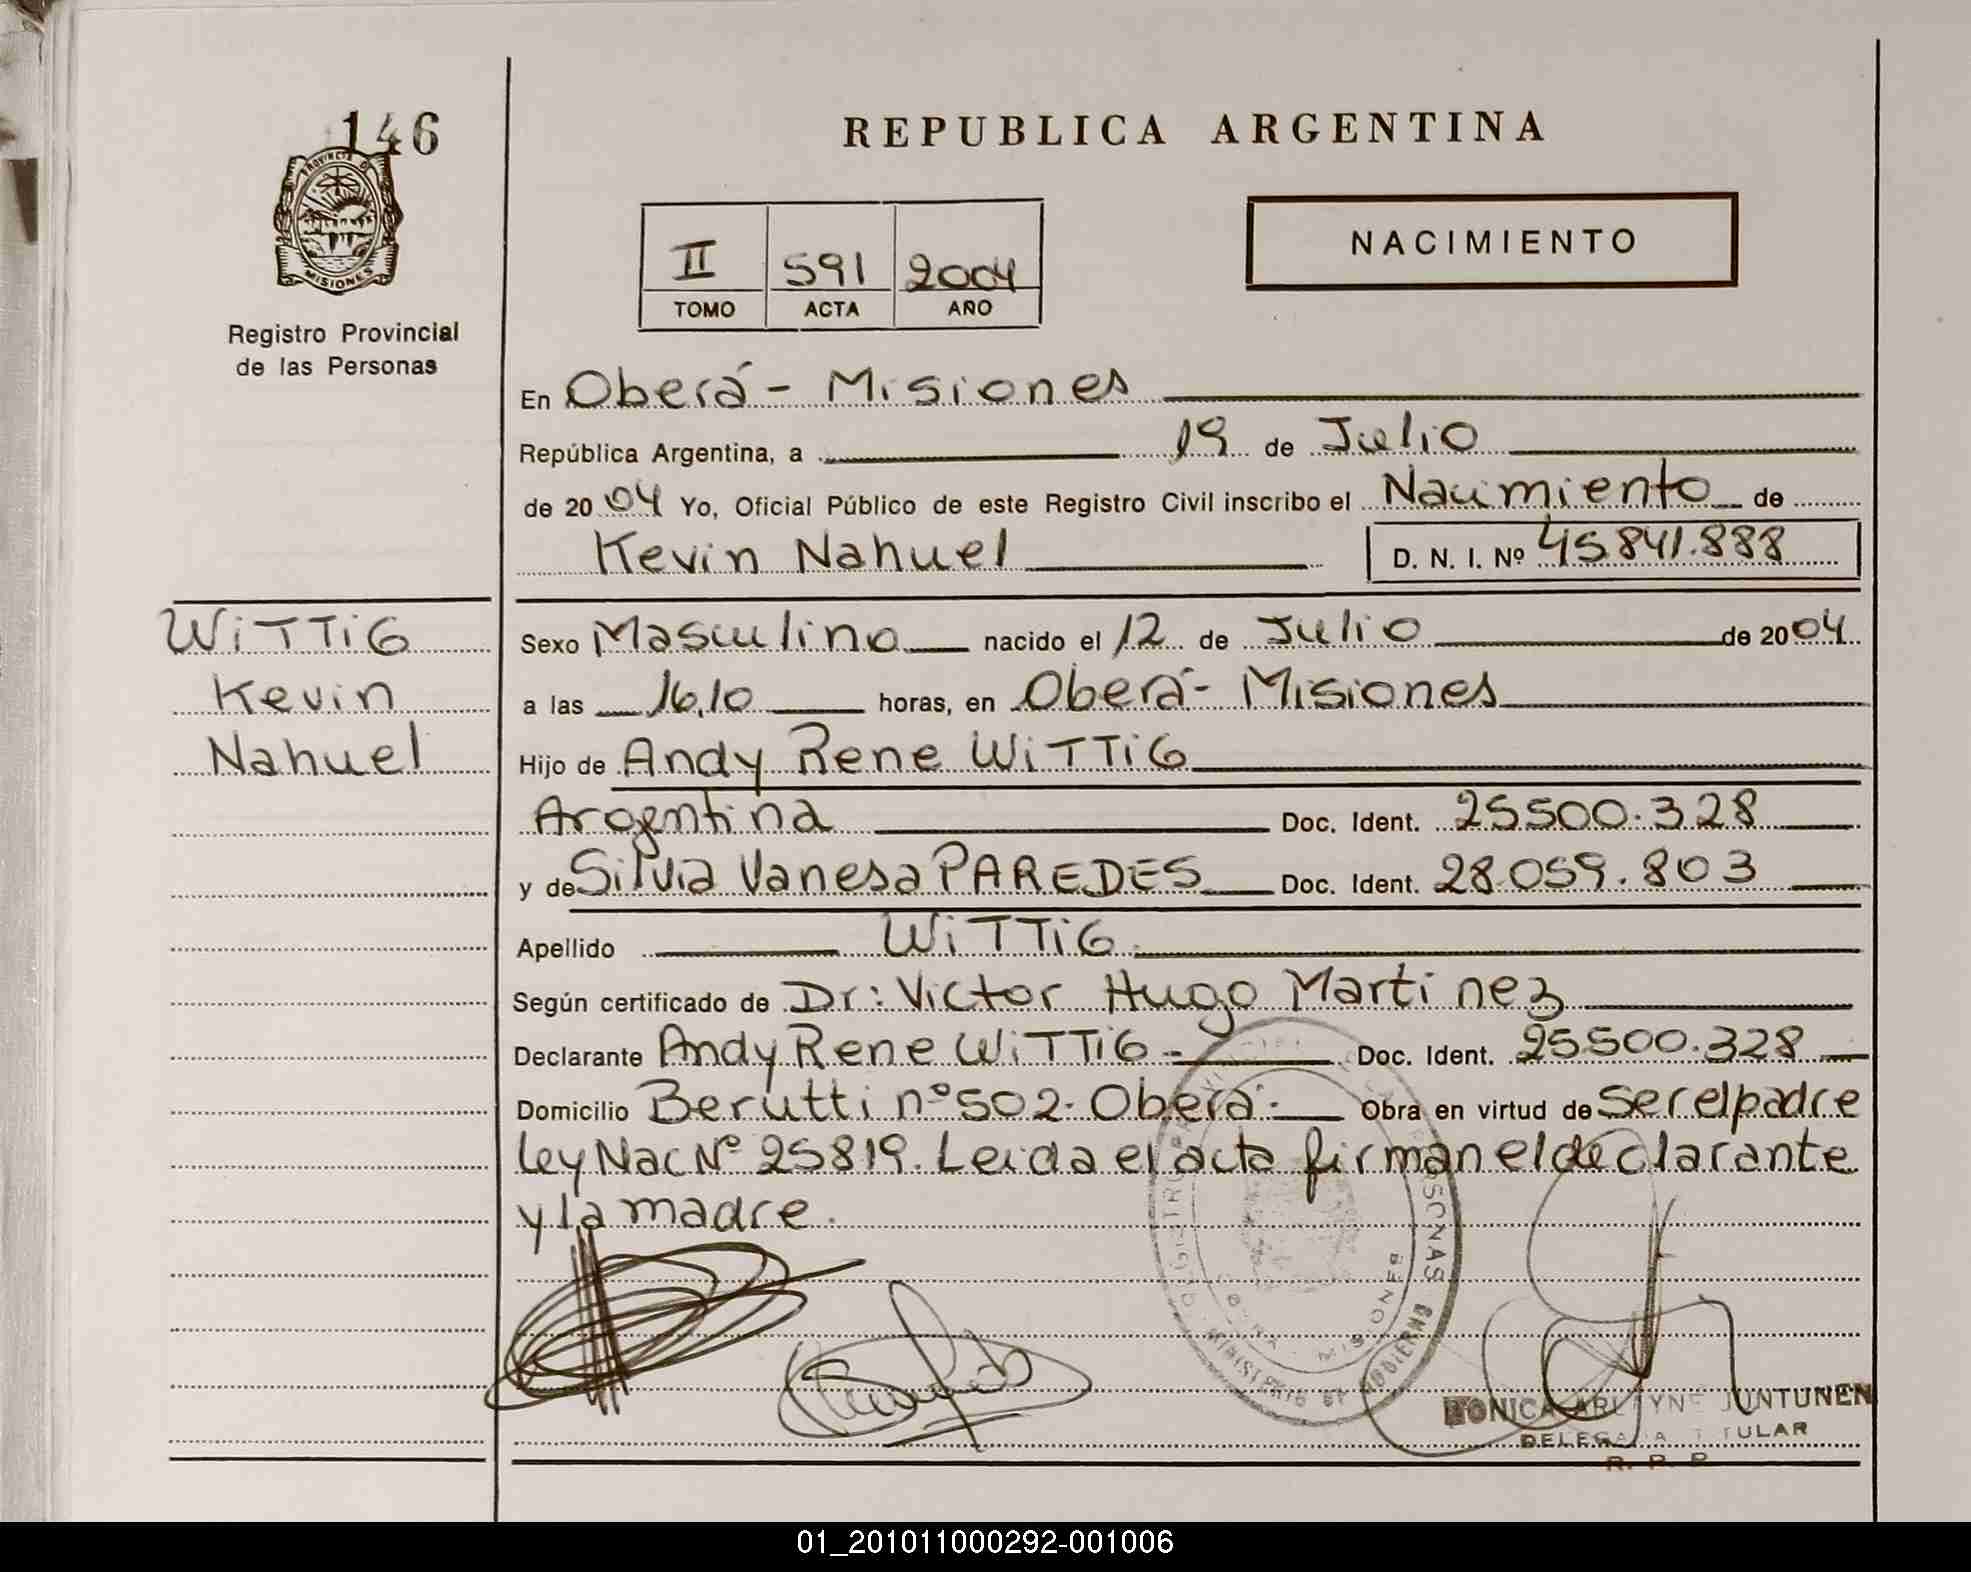 146
PROVINCIA DE
MISIONES
Registro Provincial
de las Personas
REPUBLICA ARGENTINA
II 591 2004
TOMO ACTA AÑO
NACIMIENTO
En Oberá - Misiones
República Argentina, a 19 de Julio
de 2004 Yo, Oficial Público de este Registro Civil inscribo el Nacimiento de
Kevin Nahuel D. N. I. Nº 45.841.888
WiTTiG
Kevin
Nahuel
Sexo Masculino nacido el 12 de Julio de 2004
a las 16,10 horas, en Oberá - Misiones
Hijo de Andy Rene WiTTiG
Argentina Doc. Ident. 25500.328
y de Silvia Vanesa PAREDES Doc. Ident. 28.059.803
Apellido WiTTiG.
Según certificado de Dr: Victor Hugo Martinez
Declarante Andy Rene WiTTiG - Doc. Ident. 25500.328
Domicilio Berutti nº 502. Oberá - Obra en virtud de Ser el padre
Ley Nac Nº 25819. Leida el acta firman el declarante
y la madre.
MISIONES
MINISTERIO DE GOBIERNO
MONICA ARLEYNE JUNTUNEN
DELEGADA TITULAR
R. P. P.
01_201011000292-001006